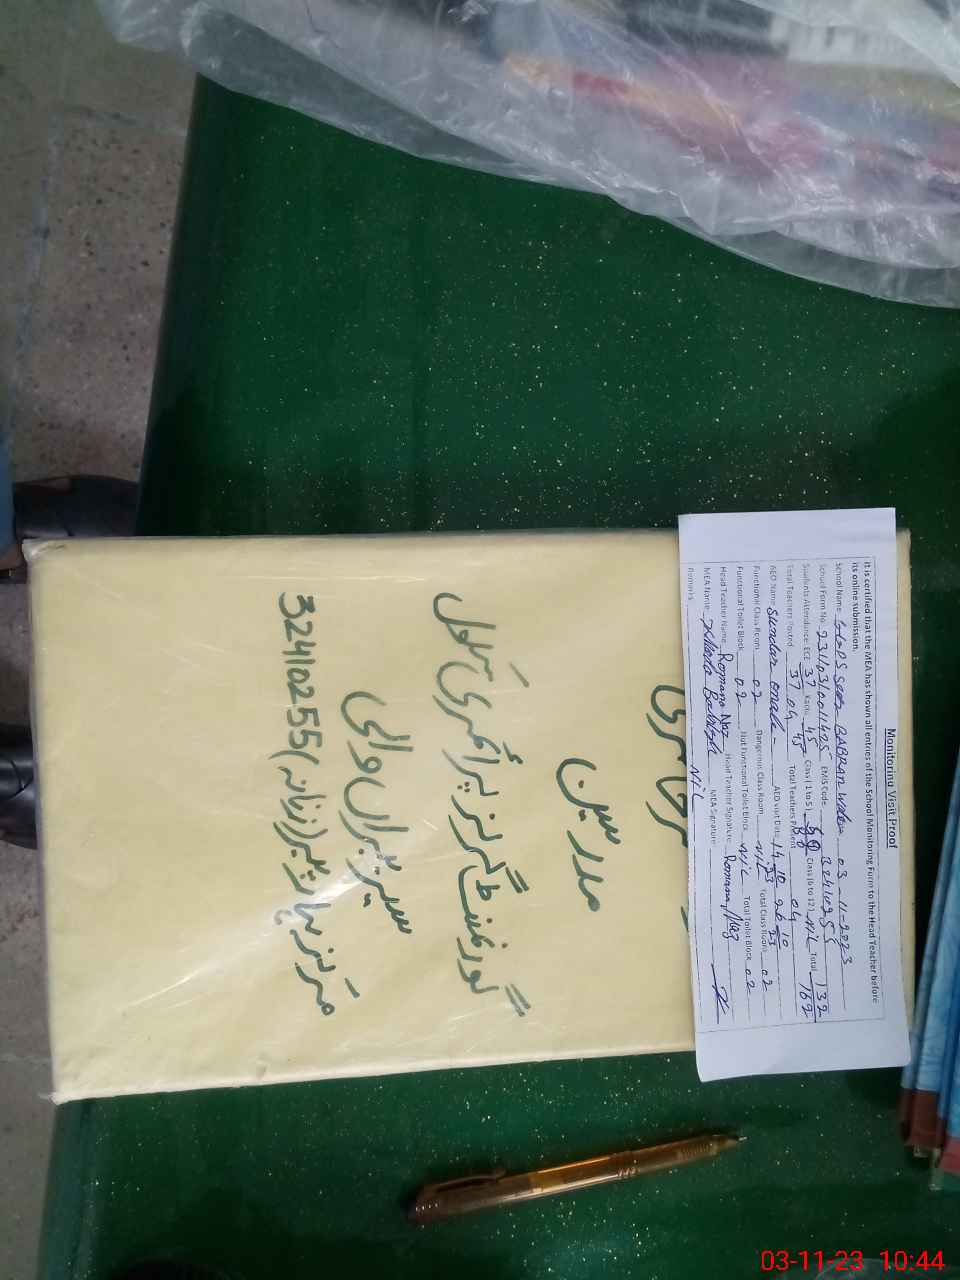 Monitoring Visit Proof
It is certified that the MEA has shown all entries of the School Monitoring Form to the Head Teacher before
its online submission.
School Name GGPS BABRAN 03-11-2023
School Form No. EMIS Code 32410255
Students Attendance: ECE 37 Kachi 45 Class (1 to 5) Class (6 to 12) NiL Total 132
37 45 80 162
Total Teachers Posted 04 Total Teachers Present 04
AEO Name AEO Visit Date 14-10-23 26-10-23
Functional Class Room 02 Dangerous Class Room NiL Total Class Room 02
Functional Toilet Block 02 Not Functional Toilet Block NiL Total Toilet Block 02
Head Teacher Name Romana Naz Head Teacher Signature Romana Naz
MEA Name MEA Signature
Remarks NiL
مدرسین
گورنمنٹ گرلز پرائمری سکول
والی
مرکز (زنانہ) 32410255
03-11-23 10:44